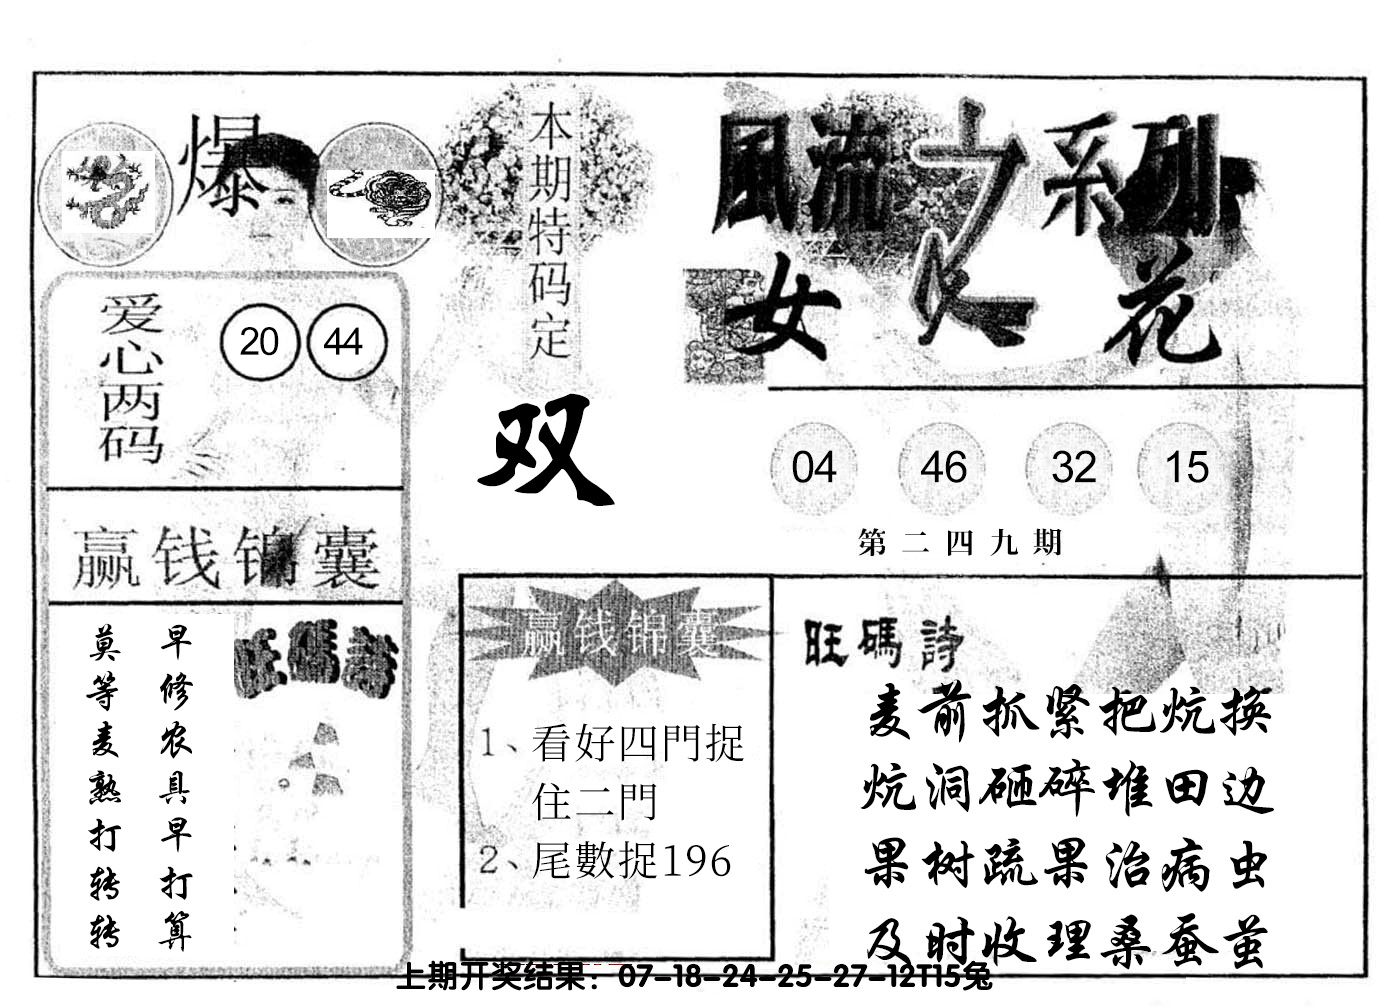 爆
本期特码定
双
風流之系列
女人花
爱心两码
20 44
04 46 32 15
第二四九期
赢钱锦囊
早修农具早打算
莫等麦熟打转转
旺碼詩
赢钱锦囊
1、看好四門捉
住二門
2、尾數捉196
旺碼詩
麦前抓紧把炕换
炕洞砸碎堆田边
果树疏果治病虫
及时收理桑蚕茧
上期开奖结果：07-18-24-25-27-12T15兔